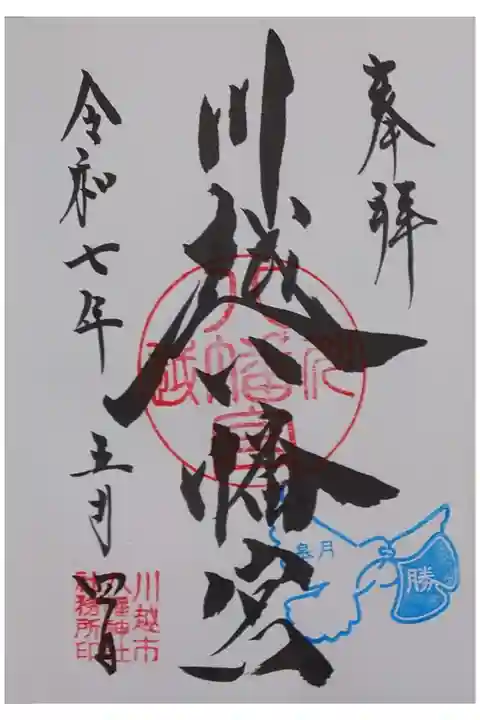 奉拝
川越八幡宮
令和七年五月四日
川越八幡宮
皐月
勝
川越市
八幡神社
社務所印